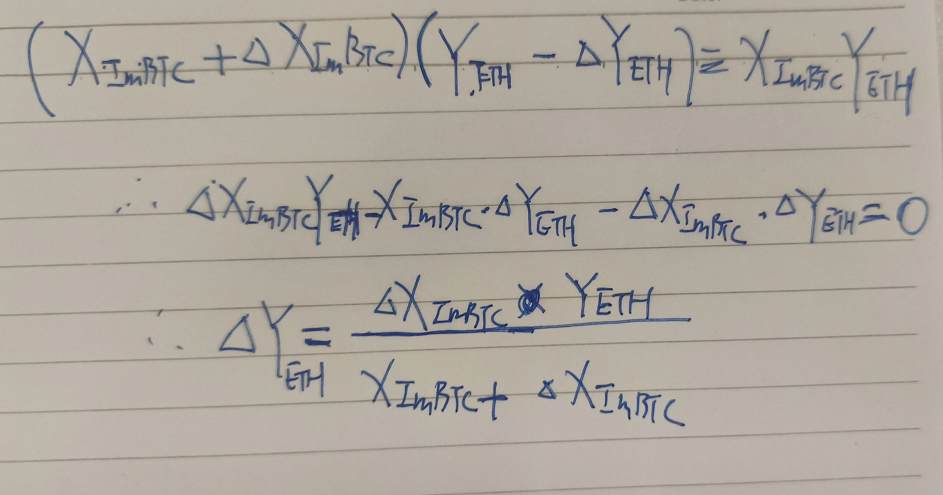 (X_ImBTC + ΔX_ImBTC)(Y_ETH − ΔY_ETH) = X_ImBTC Y_ETH
∴ ΔX_ImBTC Y_ETH − X_ImBTC · ΔY_ETH − ΔX_ImBTC · ΔY_ETH = 0
∴ ΔY_ETH = ΔX_ImBTC Y_ETH / X_ImBTC + ΔX_ImBTC